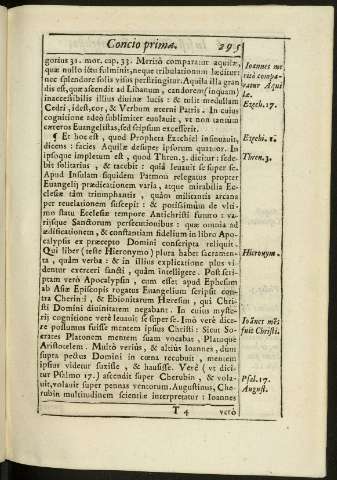 Concio prima. 295
gorius 31. mor. cap. 33. Meritò comparatur aquilæ,
quæ nullo ictu fulminis, neque tribulationum læditur
nec splendore solis visus perstringitur. Aquila illa gran
dis est, quæ ascendit ad Libanum, candorem (inquam)
inaccessibilis illius divinæ lucis: & tulit medullam
Cedri, id est, cor, & Verbum æterni Patris. In cuius
cognitione adeò sublimiter evolauit, ut non tantum
cæteros Euangelistas, sed seipsum excesserit.
¶ Et hoc est, quod Propheta Ezechiel insinuavit,
dicens: facies Aquilæ desuper ipsorum quatuor. In
ipsoque impletum est, quod Thren. 3. dicitur: sede-
bit solitarius, & tacebit: quià leuauit se super se.
Apud Insulam siquidem Patmon relegatus propter
Euangelij prædicationem varia, atque mirabilia Ec-
clesiæ tàm triumphantis, quàm militantis arcana
per reuelationem suscepit: & potissimùm de ulti-
mo statu Ecclesiæ tempore Antichristi futuro: va-
rijsque Sanctorum persecutionibus: quæ omnia ad
ædificationem, & constantiam fidelium in libro Apo-
calypsis ex præcepto Domini conscripta reliquit.
Qui liber (teste Hieronymo) plura habet Sacramen-
ta, quàm verba: & in illius explicatione plus vi-
dentur exerceri sancti, quàm intelligere. Post scri-
ptam verò Apocalypsin, cum esset apud Ephesum
ab Asiæ Episcopis rogatus Euangelium scripsit con-
tra Cherinti, & Ebionitarum Hæresim, qui Chri-
sti Domini divinitatem negabant. In cuius myste-
rij cognitione verè leuauit se super se. Imò verè dice-
re possumus fuisse mentem ipsius Christi: Sicut So-
crates Platonem mentem suam vocabat, Platoque
Aristotelem. Multò verius, & altius Ioannes, dum
supra pectus Domini in cœna recubuit, mentem
ipsius videtur suxisse, & hausisse. Verè (vt dici-
tur Psalmo 17.) ascendit super Cherubin, & vola-
uit, volauit super pennas ventorum. Augustinus, Che-
rubin multitudinem scientiæ interpretatur: Ioannes
T 4 verò
Ioannes me
ritò compa-
ratur Aqui
læ.
Ezech. 17.
Ezechi. 1.
Thren. 3.
Hieronym.
fuit Christi.
Psal. 17.
August.